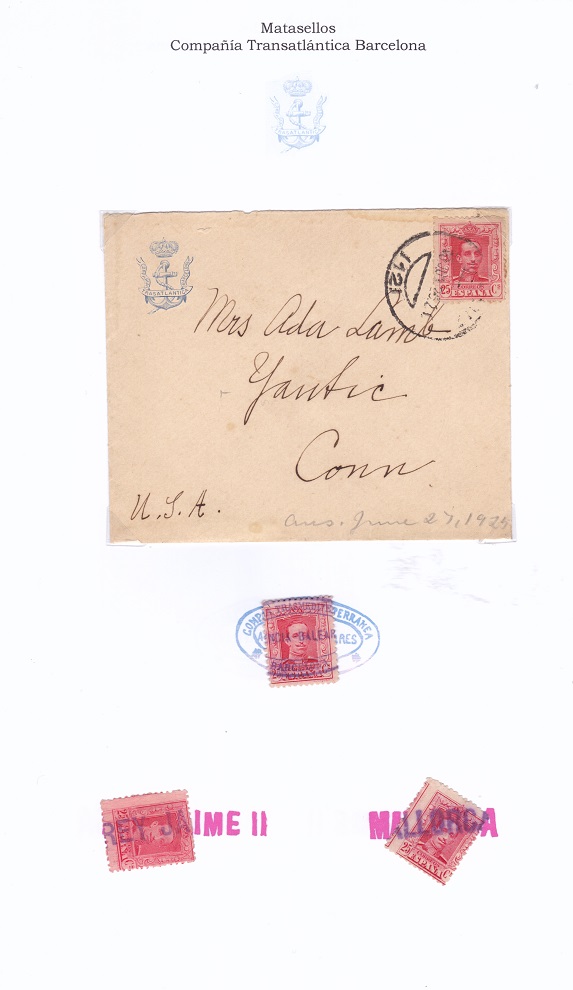 Matasellos
Compañía Transatlántica Barcelona
TRASATLANTICA
TRASATLANTICA
25 ESPAÑA Cs
Mrs Ada Lamb
Yantic
Conn
U.S.A.
ans. June 27, 192
COMPAÑIA TRASMEDITERRANEA
BALEARES
REY JAIME II
MALLORCA
25 ESPAÑA